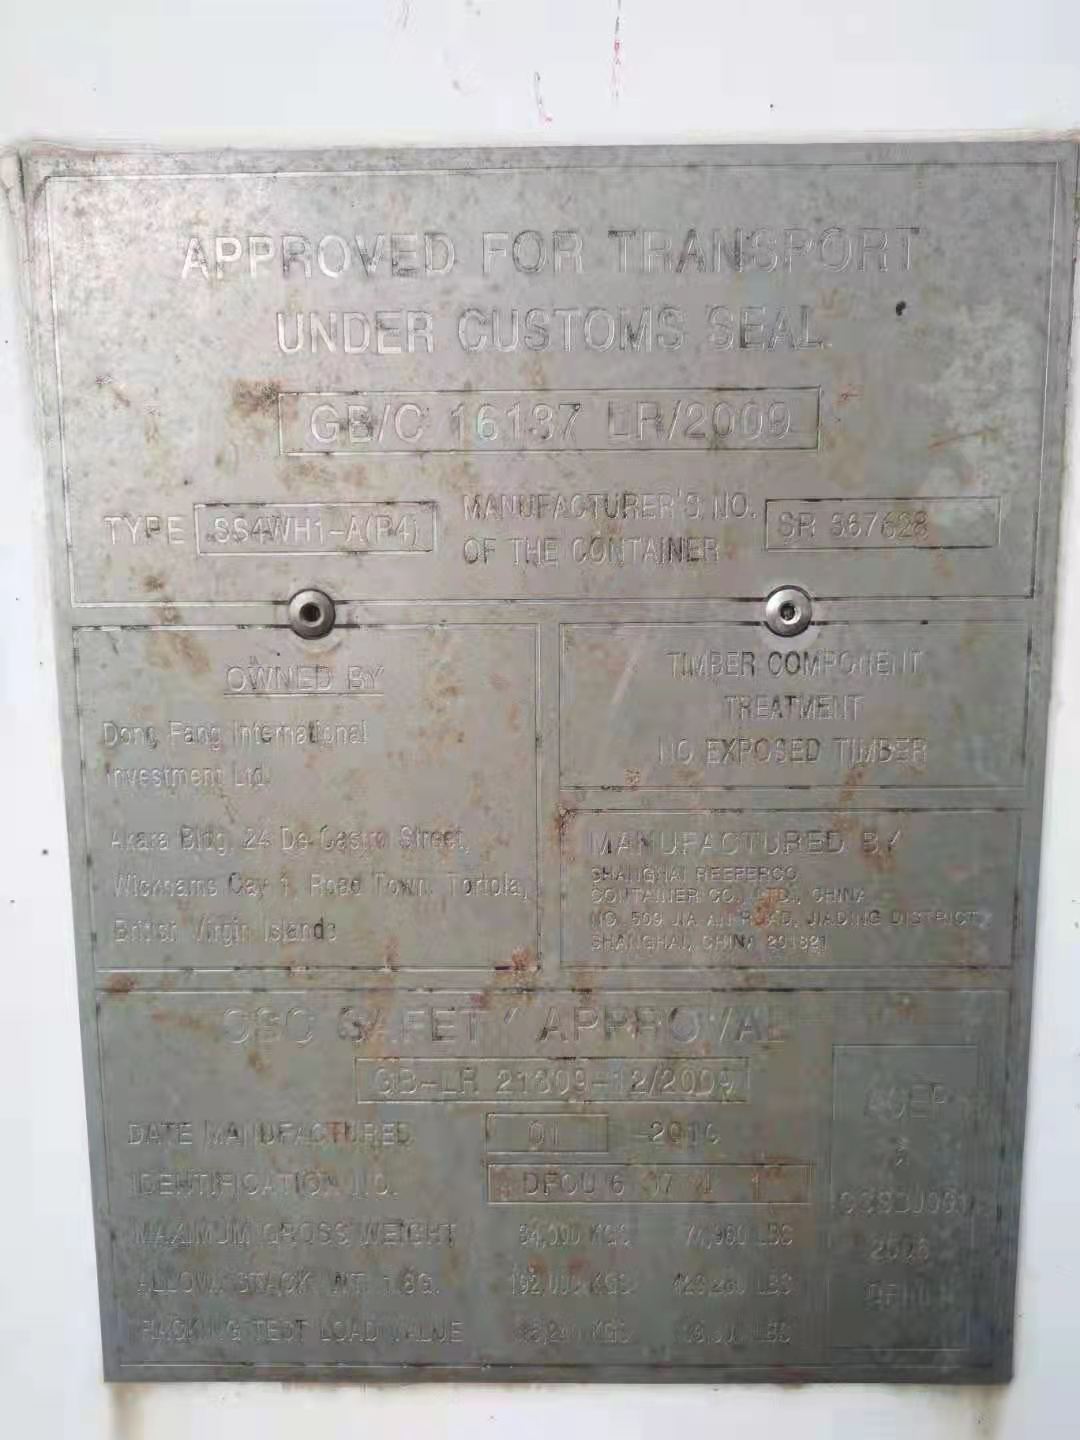 APPROVED FOR TRANSPORT
UNDER CUSTOMS SEAL
GB/C 16137 LR/2009
TYPE SS4WH1-A(P4)
MANUFACTURER'S NO.
OF THE CONTAINER
SR 367628
OWNED BY
Dong Fang International
Investment Ltd.
Akara Bldg. 24 De Castro Street,
Wickhams Cay 1, Road Town, Tortola,
British Virgin Islands
TIMBER COMPONENT
TREATMENT
NO EXPOSED TIMBER
MANUFACTURED BY
SHANGHAI REEFERCO
CONTAINER CO., LTD., CHINA
NO. 509 JIA AN ROAD, JIADING DISTRICT,
SHANGHAI, CHINA 201821
CSC SAFETY APPROVAL
GB-LR 21609-12/2009
DATE MANUFACTURED 01 -2010
IDENTIFICATION NO. DFOU 6
MAXIMUM GROSS WEIGHT 34,000 KGS 74,960 LBS
ALLOW. STACK WT. 1.8G. 192,000 KGS LBS
RACKING TEST LOAD VALUE KGS LBS
ACEP